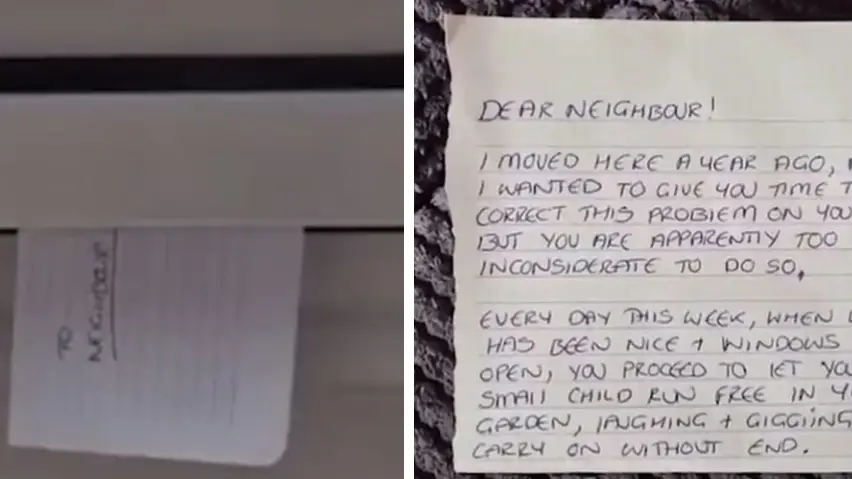 TO
NEIGHBOUR
DEAR NEIGHBOUR!
I MOVED HERE A YEAR AGO,
I WANTED TO GIVE YOU TIME T
CORRECT THIS PROBLEM ON YOU
BUT YOU ARE APPARENTLY TOO
INCONSIDERATE TO DO SO,
EVERY DAY THIS WEEK, WHEN
HAS BEEN NICE + WINDOWS
OPEN, YOU PROCEED TO LET YOU
SMALL CHILD RUN FREE IN Y
GARDEN, LAUGHING + GIGGLING
CARRY ON WITHOUT END.